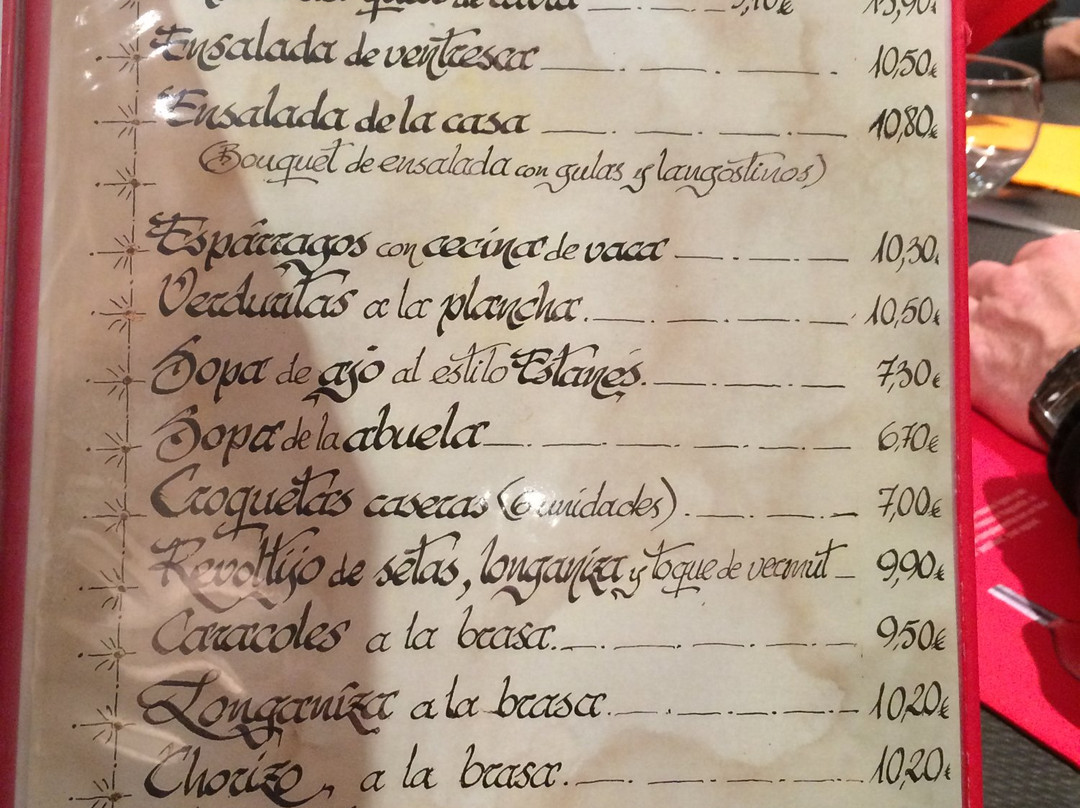 15,90€
Ensalada de ventresca 10,50€
Ensalada de la casa 10,80€
(Bouquet de ensalada con gulas y langostinos)
Espárragos con cecina de vaca 10,30€
Verduritas a la plancha. 10,50€
Sopa de ajo al estilo Estanés. 7,30€
Sopa de la abuela 6,70€
Croquetas caseras (6 unidades). 7,00€
Revoltijo de setas, longaniza y toque de vermut 9,90€
Caracoles a la brasa. 9,50€
Longaniza a la brasa. 10,20€
Chorizo a la brasa. 10,20€